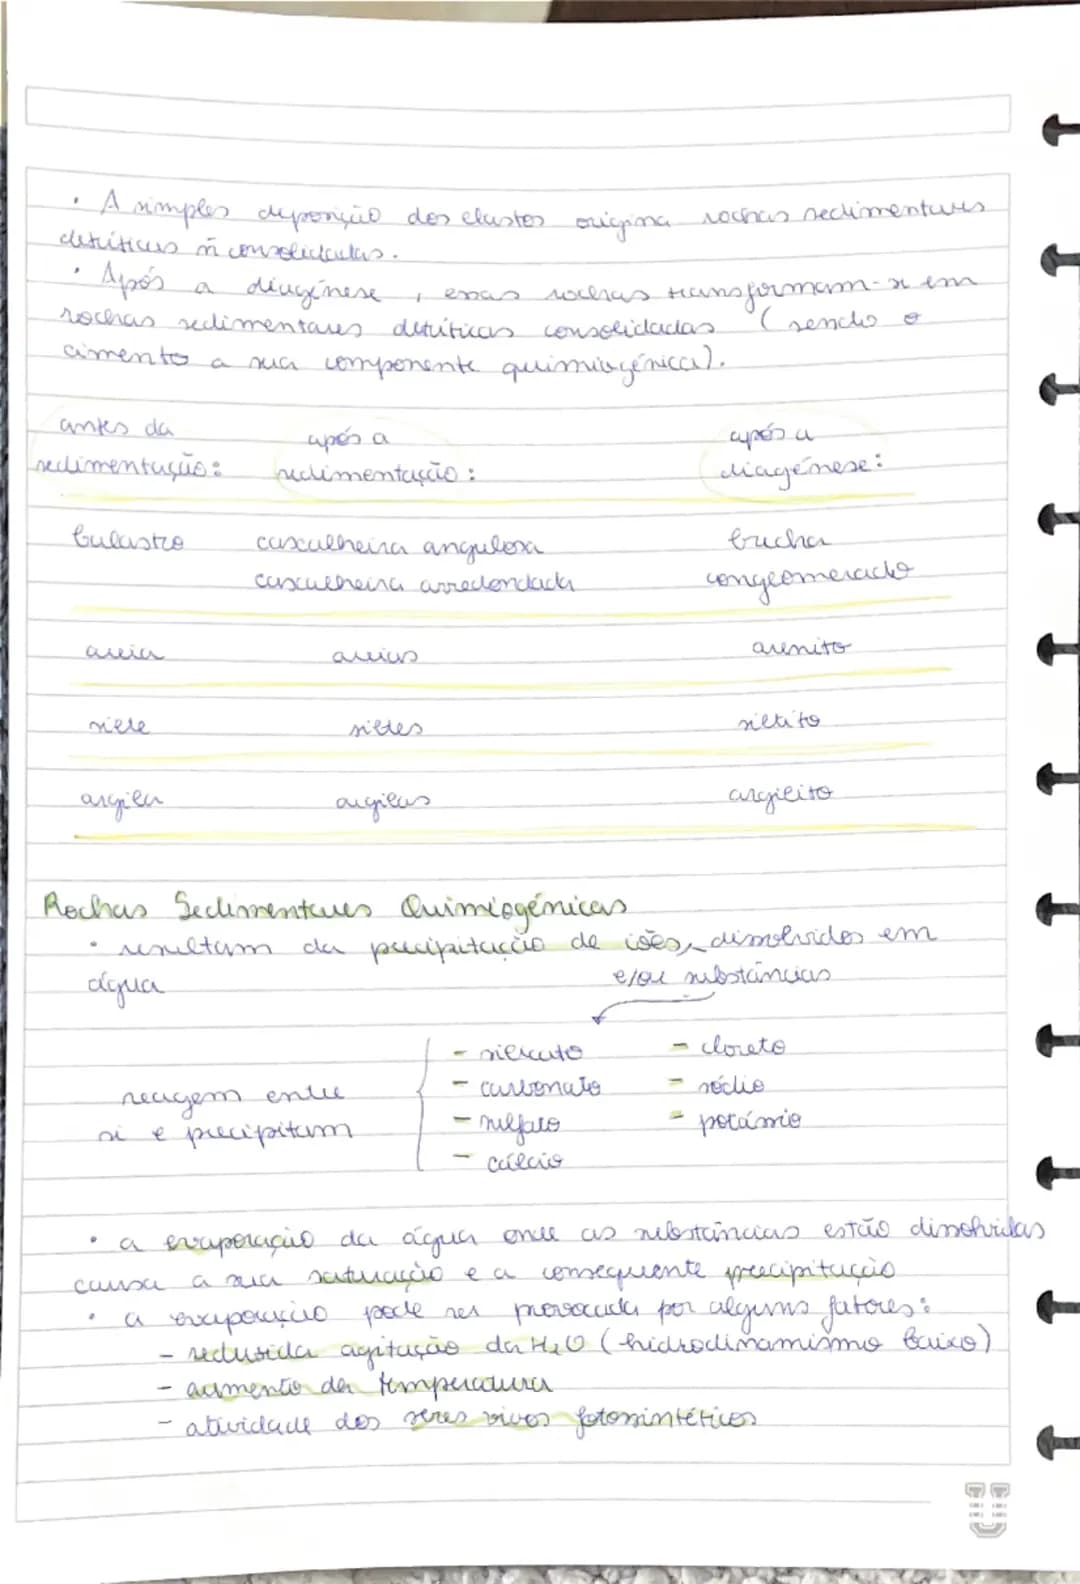 · A simples deposição dos clastos origina rochas sedimentares
detríticas ñ consolidadas.
· Após a diagénese, essas rochas transformam-se em
rochas sedimentares detríticas consolidadas (sendo o
cimento a sua componente quimiogénica).
antes da sedimentação: após a sedimentação: após a diagénese:
balastro cascalheira angulosa brecha
cascalheira arredondada conglomerado
areia areias arenito
silte siltes siltito
argila argilas argilito
Rochas Sedimentares Quimiogénicas
· resultam da precipitação de iões dissolvidos em
e/ou substâncias
água
- silicato - cloreto
reagem entre - carbonato - sódio
si e precipitam - sulfato - potássio
- cálcio
· a evaporação da água onde as substâncias estão dissolvidas
causa a sua saturação e a consequente precipitação
· a evaporação pode ser provocada por alguns fatores:
- reduzida agitação da H₂O (hidrodinamismo baixo)
- aumento da temperatura
- atividade dos seres vivos fotossintéticos
U